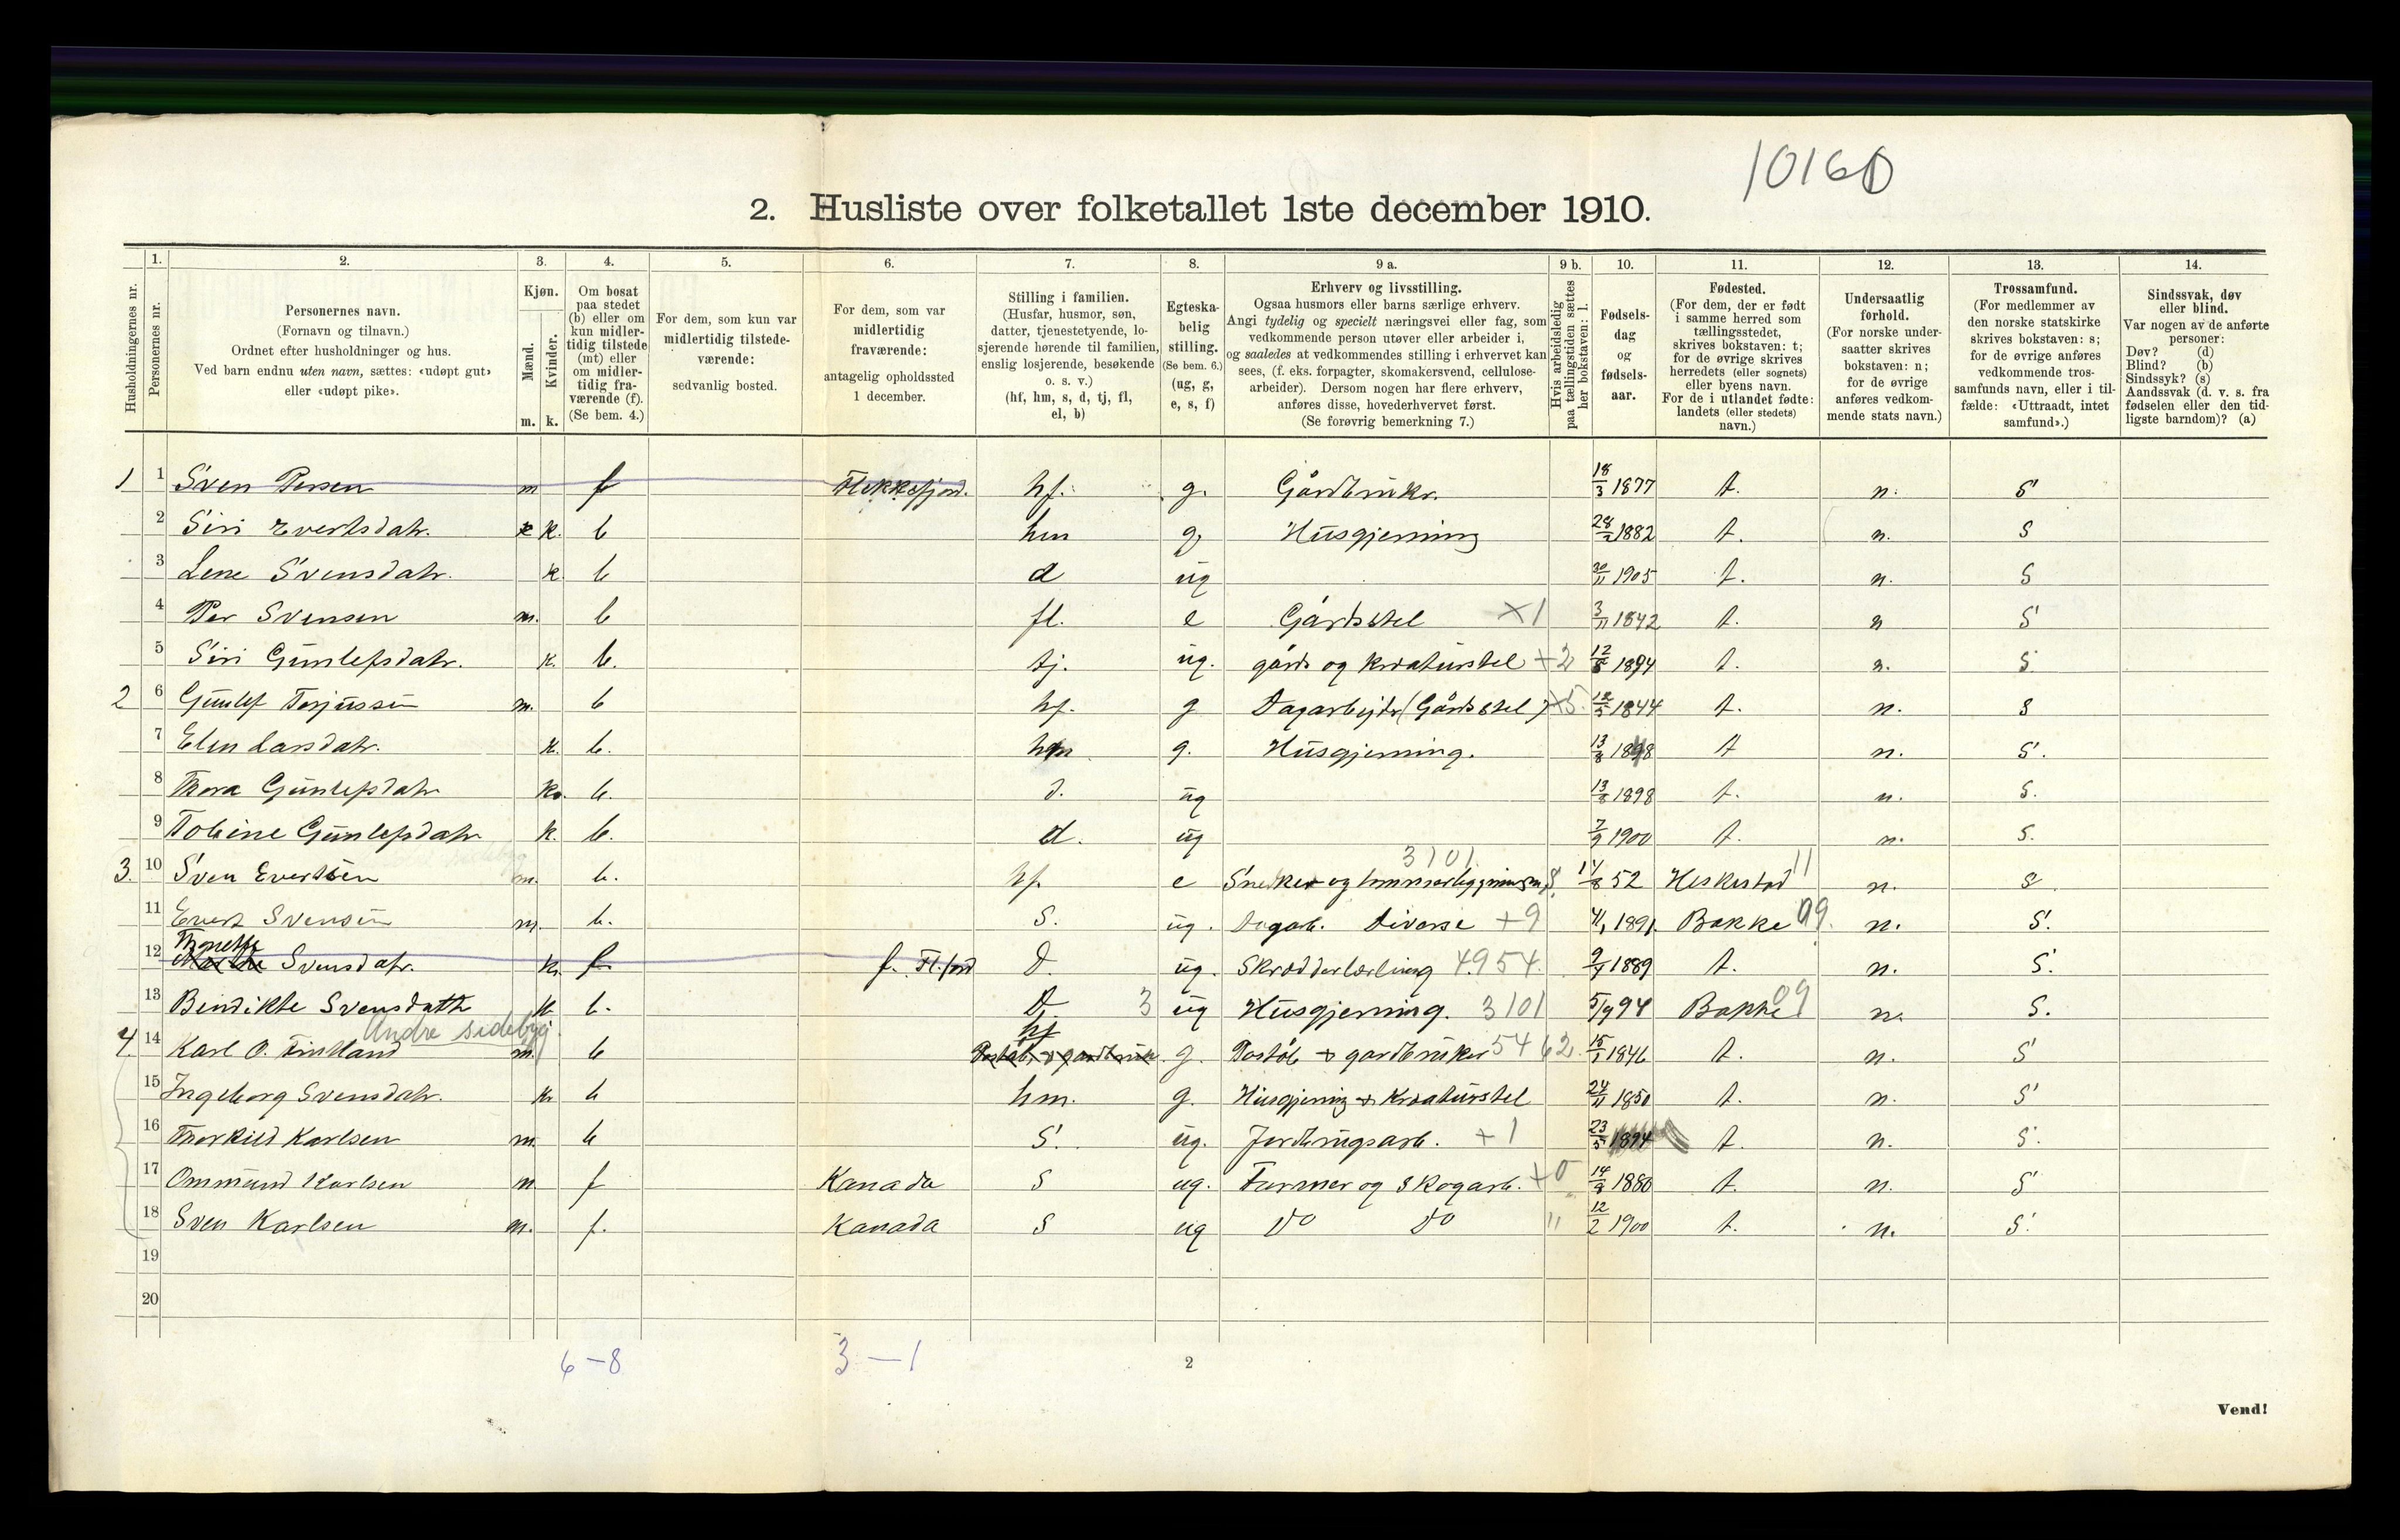 10160
2. Husliste over folketallet 1ste december 1910.
Husholdningernes nr.
1. Personernes nr.
2. Personernes navn. (Fornavn og tilnavn.) Ordnet efter husholdninger og hus. Ved barn endnu uten navn, sættes: «udøpt gut» eller «udøpt pike».
3. Kjøn. Mænd. m. Kvinder. k.
4. Om bosat paa stedet (b) eller om kun midlertidig tilstede (mt) eller om midlertidig fraværende (f). (Se bem. 4.)
5. For dem, som kun var midlertidig tilstedeværende: sedvanlig bosted.
6. For dem, som var midlertidig fraværende: antagelig opholdssted 1 december.
7. Stilling i familien. (Husfar, husmor, søn, datter, tjenestetyende, losjerende hørende til familien, enslig losjerende, besøkende o. s. v.) (hf, hm, s, d, tj, fl, el, b)
8. Egteskabelig stilling. (Se bem. 6.) (ug, g, e, s, f)
9 a. Erhverv og livsstilling. Ogsaa husmors eller barns særlige erhverv. Angi tydelig og specielt næringsvei eller fag, som vedkommende person utøver eller arbeider i, og saaledes at vedkommendes stilling i erhvervet kan sees, (f. eks. forpagter, skomakersvend, cellulosearbeider). Dersom nogen har flere erhverv, anføres disse, hovederhvervet først. (Se forøvrig bemerkning 7.)
9 b. Hvis arbeidsledig paa tællingstiden sættes her bokstaven: l.
10. Fødselsdag og fødselsaar.
11. Fødested. (For dem, der er født i samme herred som tællingsstedet, skrives bokstaven: t; for de øvrige skrives herredets (eller sognets) eller byens navn. For de i utlandet fødte: landets (eller stedets) navn.)
12. Undersaatlig forhold. (For norske undersaatter skrives bokstaven: n; for de øvrige anføres vedkommende stats navn.)
13. Trossamfund. (For medlemmer av den norske statskirke skrives bokstaven: s; for de øvrige anføres vedkommende trossamfunds navn, eller i tilfælde: «Uttraadt, intet samfund».)
14. Sindssvak, døv eller blind. Var nogen av de anførte personer: Døv? (d) Blind? (b) Sindssyk? (s) Aandssvak (d. v. s. fra fødselen eller den tidligste barndom)? (a)
1 1 Sven Persen m f Flekkefjord. hf. g. Gårdbruker. 18/3 1877 t. n. S
2 Siri Evertsdatr. k. b hm g. Husgjerning 28/2 1882 t. n. S
3 Lene Svensdatr. k. b d ug 30/11 1905 t. n. S
4 Per Svensen m. b fl. e Gårdsstel ×1 3/11 1842 t. n S
5 Siri Gunlefsdatr. k. b. tj. ug. gårds og kreaturstel +2 12/8 1894 t. n. S
2 6 Gunlef Terjussen m. b hf. g Dagarbejdr (Gårdsstel) ×5 12/5 1844 t. n. S
7 Elen Larsdatr. k. b. hm g. Husgjerning. 13/8 1848 t n. S.
8 Thora Gunlefsdatr k. b. d. ug 13/8 1898 t. n. S.
9 Tobine Gunlefsdatr. k. b. d. ug 7/9 1900 t. n. S.
3101
3. 10 Sven Evertsen m. b. hf. e Snedker og 14/8 52 Heskestad 11 n. S.
11 Evert Svensen m. b. S. ug. Dagarb. Diverse +9 4/1 1891. Bakke 09. n. S.
Thonette
12 Svensdatr. k. f f. Fl.fjord D. ug. Skrædderlærling 4954. 9/4 1889 t. n. S.
13 Bendikte Svensdatter k b. D 3 ug Husgjerning. 3101 5/9 94 Bakke 09 n. S.
Andre sidebyg. hf
4. 14 Karl O. Fintland m. b g. Poståb. & gardbruker 5462 15/1 1846 t. n. S
15 Ingeborg Svensdatr. k b hm. g. Husgjerning & Kreaturstel 24/11 1850 t. n. S
16 Thorkild Karlsen m. b S. ug. Jordbrugsarb. +1 23/5 1894 t. n. S.
17 Ommund Karlsen m f Kanada S ug. Farmer og Skogarb. +0 14/9 1880 t. n. S
18 Sven Karlsen m. f. Kanada S ug Do Do " 12/2 1900 t. n. S.
19
20
6-8 3-1
2
Vend!